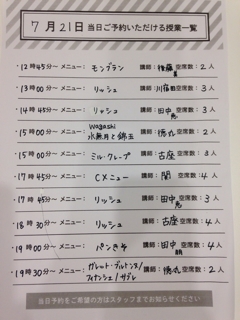 7月21日 当日ご予約いただける授業一覧
・12時45分～ メニュー： モンブラン 講師：後藤 空席数：2人
・13時00分～ メニュー： リッシュ 講師：川俣 空席数：3人
・14時45分～ メニュー： リッシュ 講師：田中 空席数：3人
・15時00分～ メニュー： wagashi 水無月と錦玉 講師：徳丸 空席数：2人
・15時00分～ メニュー： ミル・クレープ 講師：古座 空席数：3人
・17時45分～ メニュー： Cメニュー 講師：関 空席数：4人
・17時45分～ メニュー： リッシュ 講師：田中 空席数：3人
・18時30分～ メニュー： リッシュ 講師：古座 空席数：4人
・19時00分～ メニュー： パンきそ 講師：田中 空席数：4人
・19時30分～ メニュー： ガレット・ブルトンヌ/フィナンシェ/サブレ 講師：徳丸 空席数：2人
当日予約をご希望の方はスタッフまでお知らせください